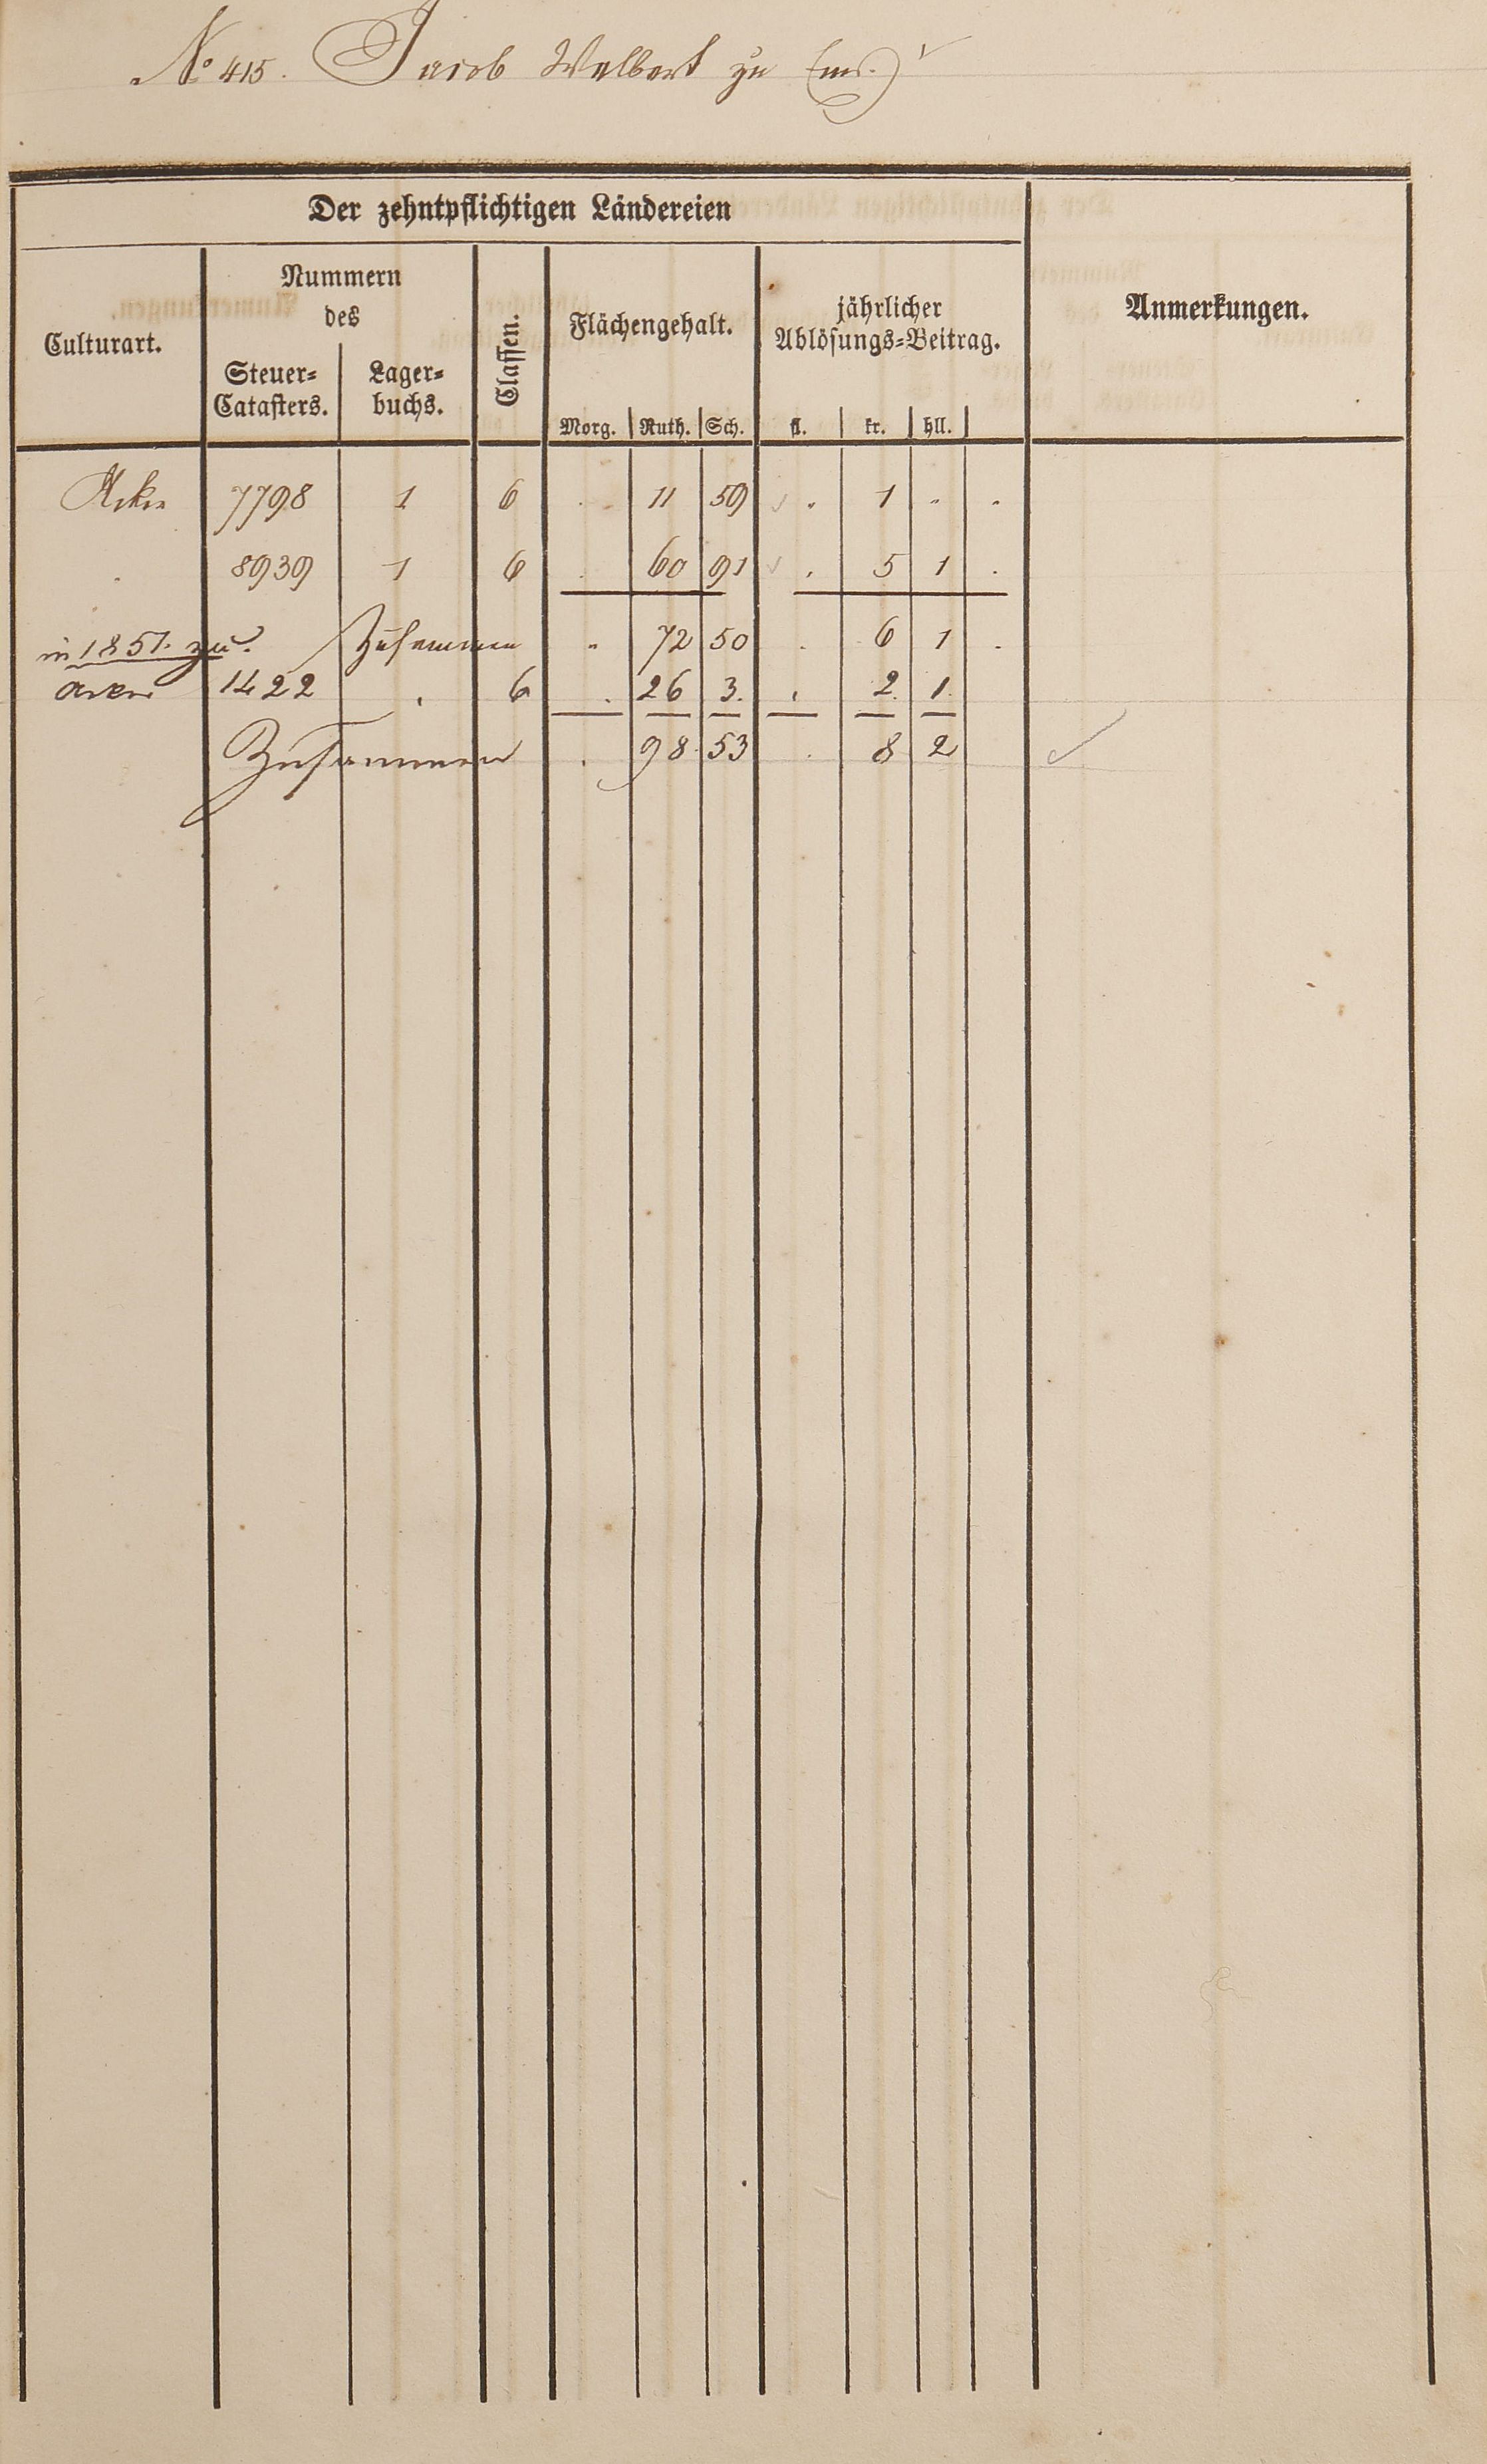 No 415. Jacob Walbert zu Ems.
Der zehntpflichtigen Ländereien
Culturart.
Nummern
des
Steuer-
Catasters.
Lager-
buchs.
Classen.
Flächengehalt.
Morg. Ruth. Sch.
jährlicher
Ablösungs-Beitrag.
fl. kr. hll.
Anmerkungen.
Acker 7798 1 6 . 11 59 . 1 . .
. 8939 1 6 . 60 91 . 5 1 .
in 1857. zu. Zusammen . 72 50 . 6 1 .
Acker 1422 . 6 . 26 3. . 2. 1.
Zusammen . 98. 53 . 8 2